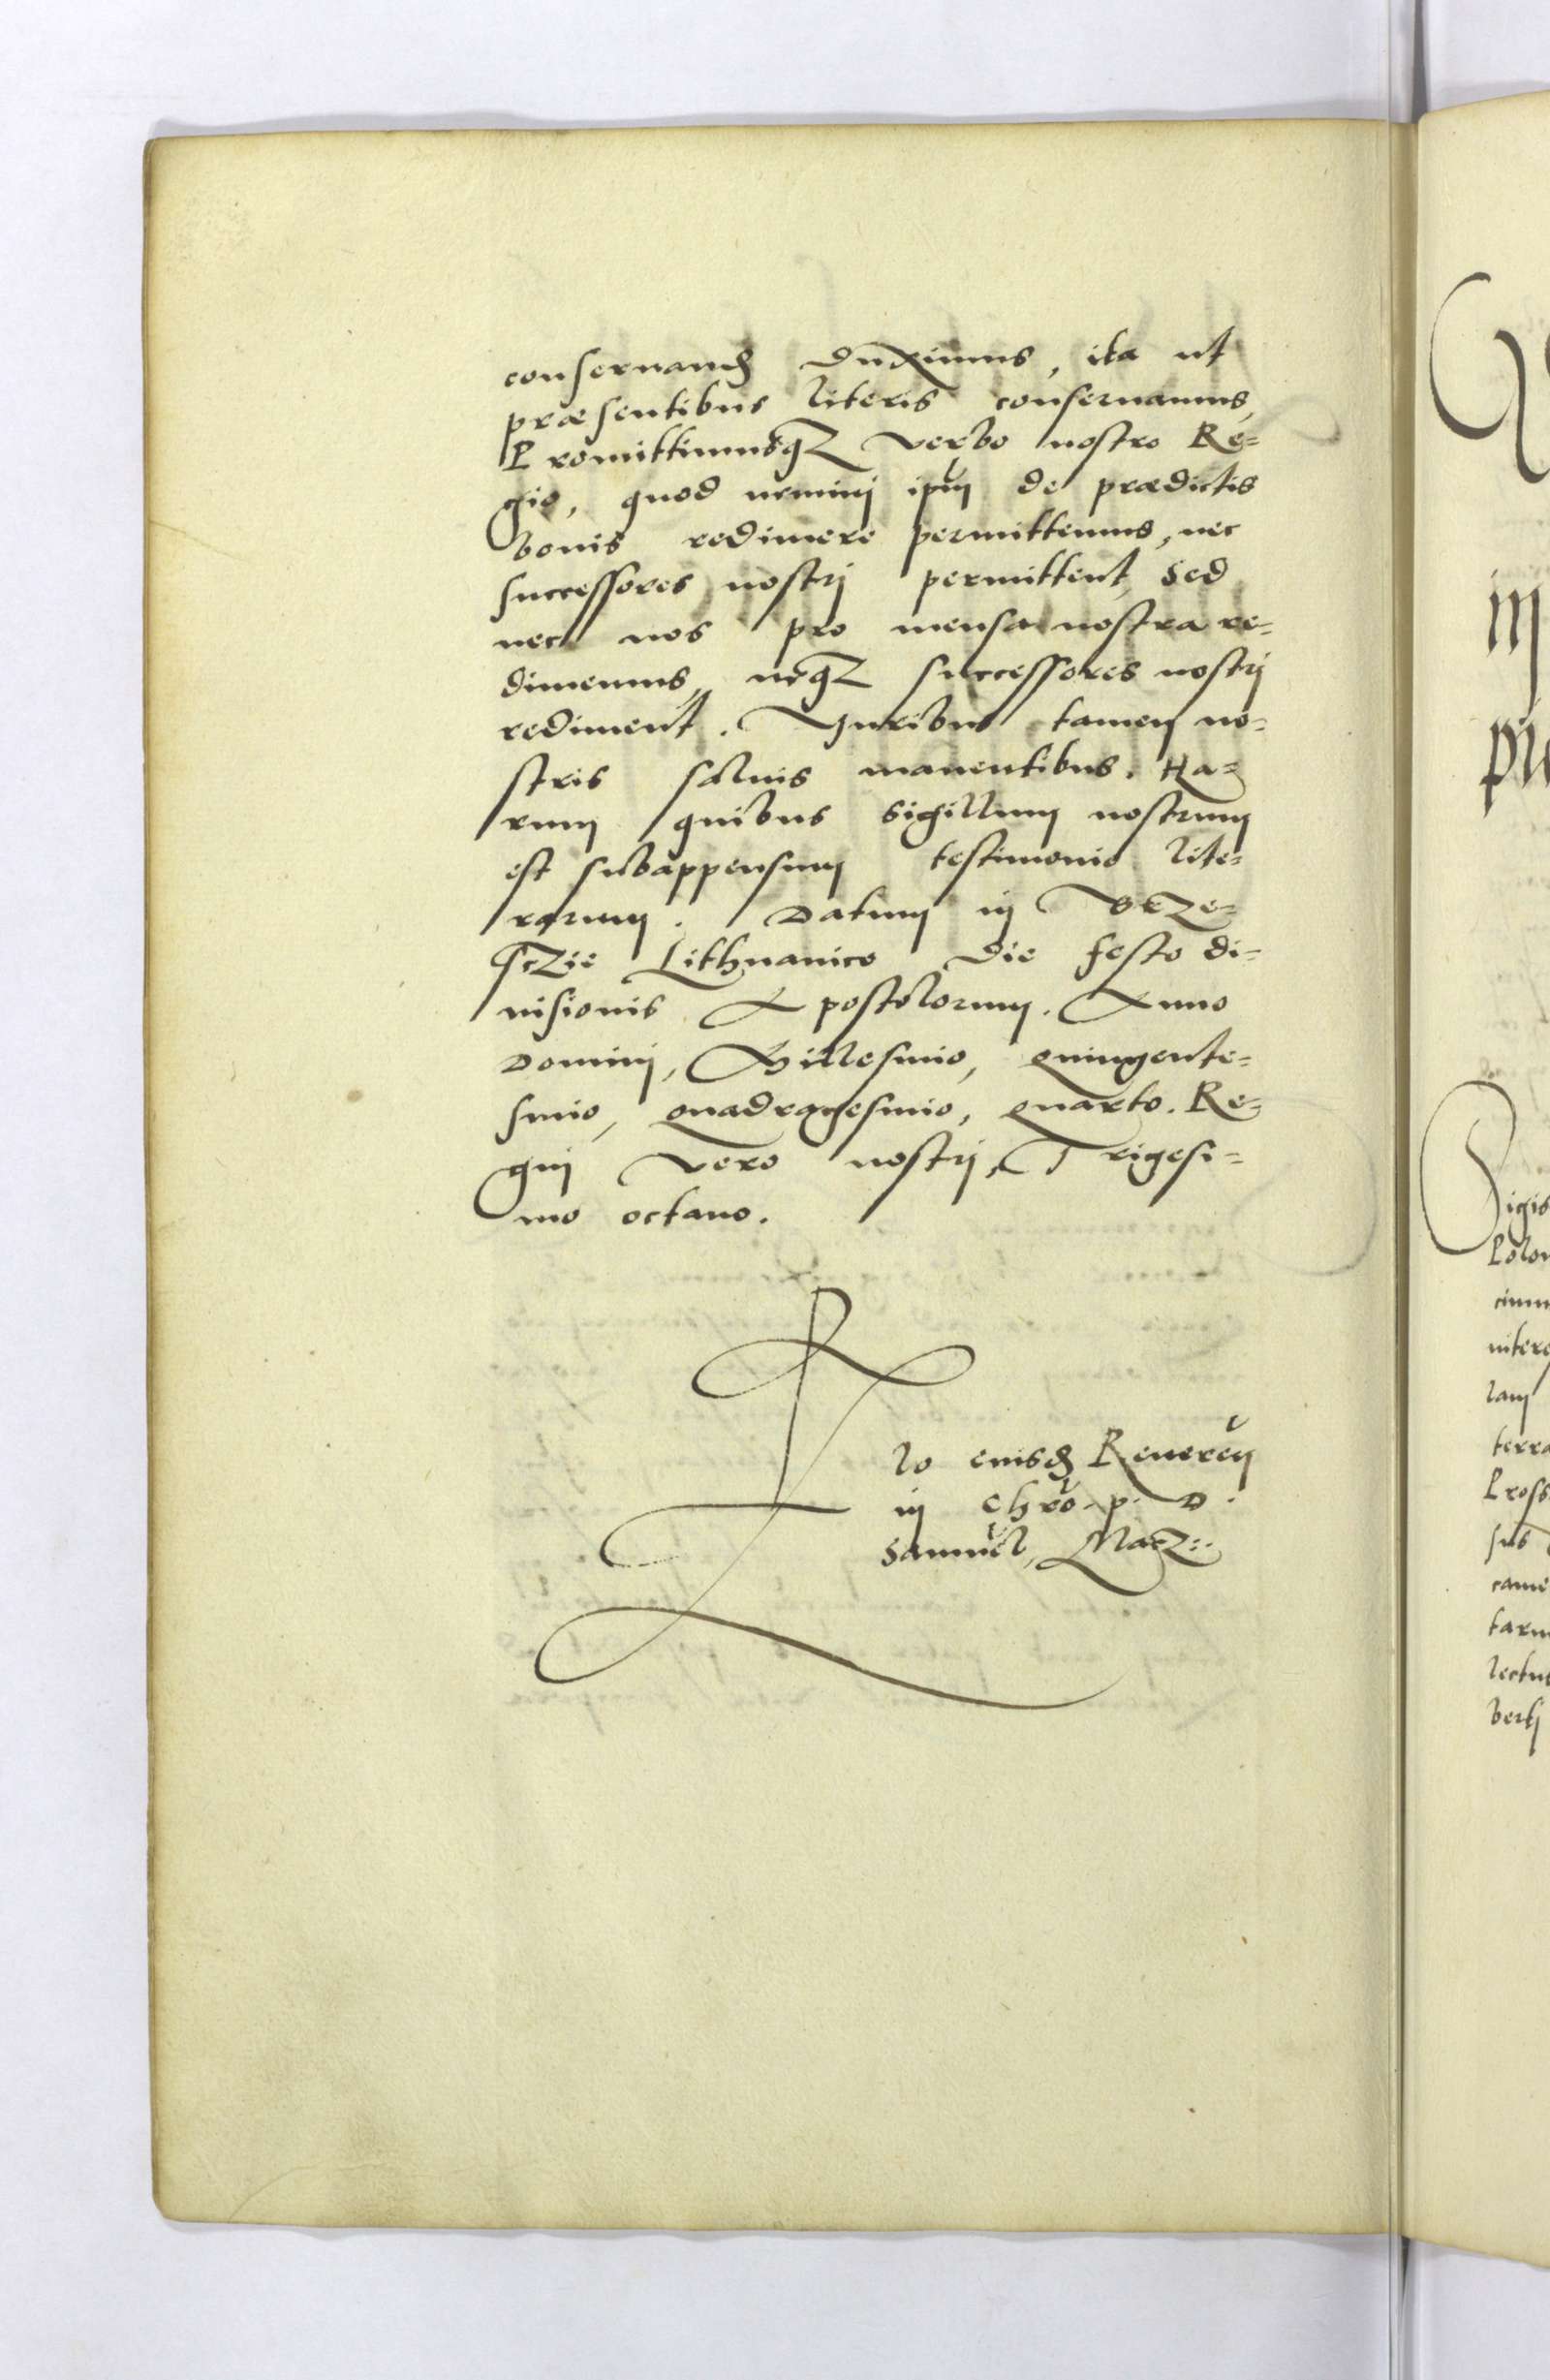 conseruand duximus, ita ut
præsentibus literis conseruamus,
Promittimusq verbo nostro Re=
gio, quod nemini ipm de prædictis
bonis redimere permittemus, nec
successores nostrj permittent, Sed
nec nos pro mensa nostra re=
dimemus, neq successores nostrj
rediment. Juribus tamen no=
stris saluis manentibus. Ha=
rum quibus Sigillum nostrum
est subappensum testimonio lite=
rarum. Datum in Brze=
sczie Lithuanico Die festo di=
uisionis Apostolorum. Anno
Dominj, Millesimo, quingente=
simo, quadragesimo, quarto. Re=
gnj vero nostrj, Trigesi=
mo octauo.
lo eiusd Reueren
in Chro. p. D.
Samuel, Macz:.
igis
Polon
terra
Pross
came
lectus
bertj